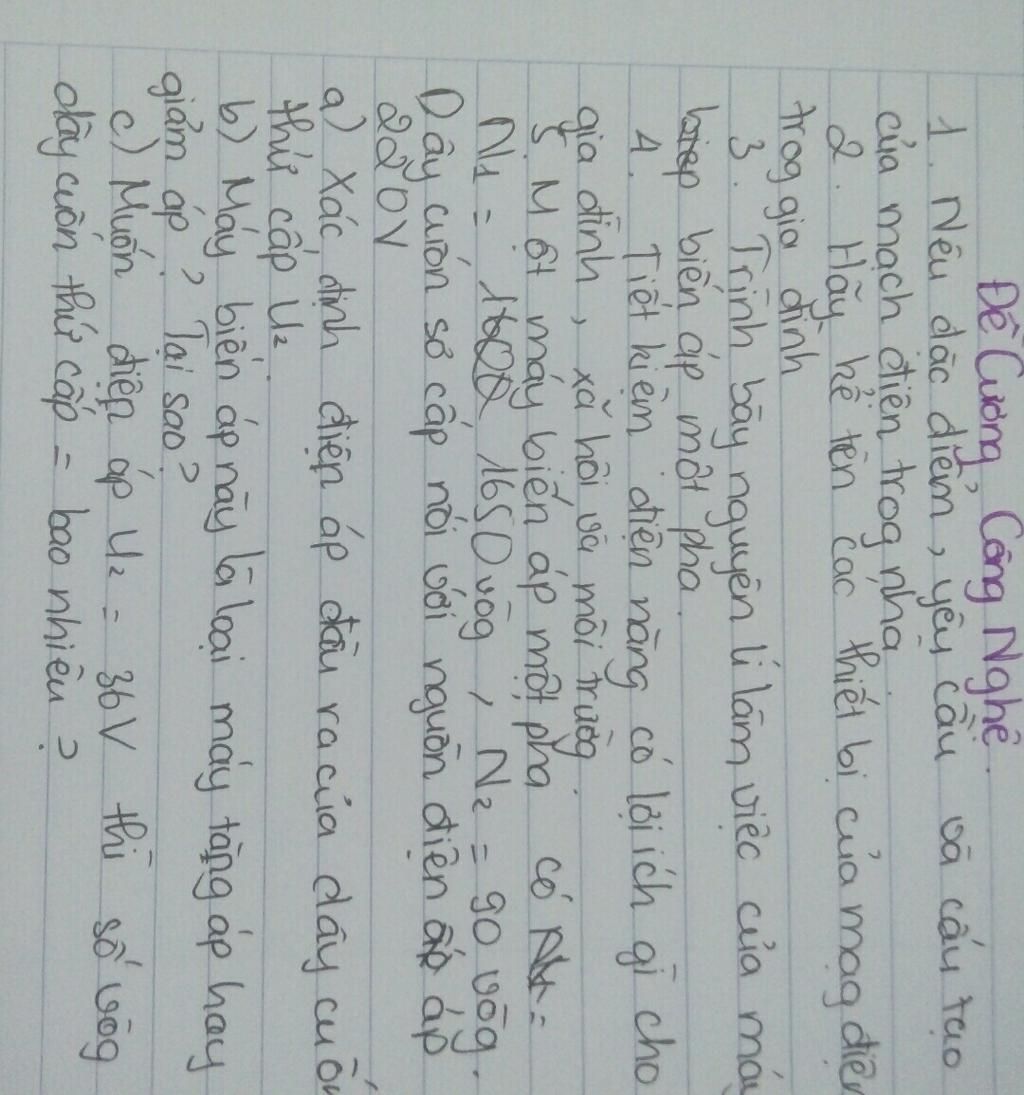 Đề Cương, Công Nghệ.
1. Nêu đặc điểm, yêu cầu và cấu tạo
của mạch điện trog nhà
2. Hãy kể tên các thiết bị của mạg điện
trog gia đình
3. Trình bày nguyên lí làm việc của máy
biến áp một pha.
4. Tiết kiệm điện năng có lợi ích gì cho
gia đình, xã hội và môi trường.
5 Một máy biến áp một pha có
N1 = 1650 vòg, N2 = 90 vòg.
Dây cuốn sơ cấp nối với nguồn điện áp
220V
a) Xác định điện áp đầu ra của dây cuốn
thứ cấp U2.
b) Máy biến áp này là loại máy tăng áp hay
giảm áp? Tại sao?
c) Muốn điện áp U2 = 36V thì số vòg
dây cuốn thứ cấp = bao nhiêu?